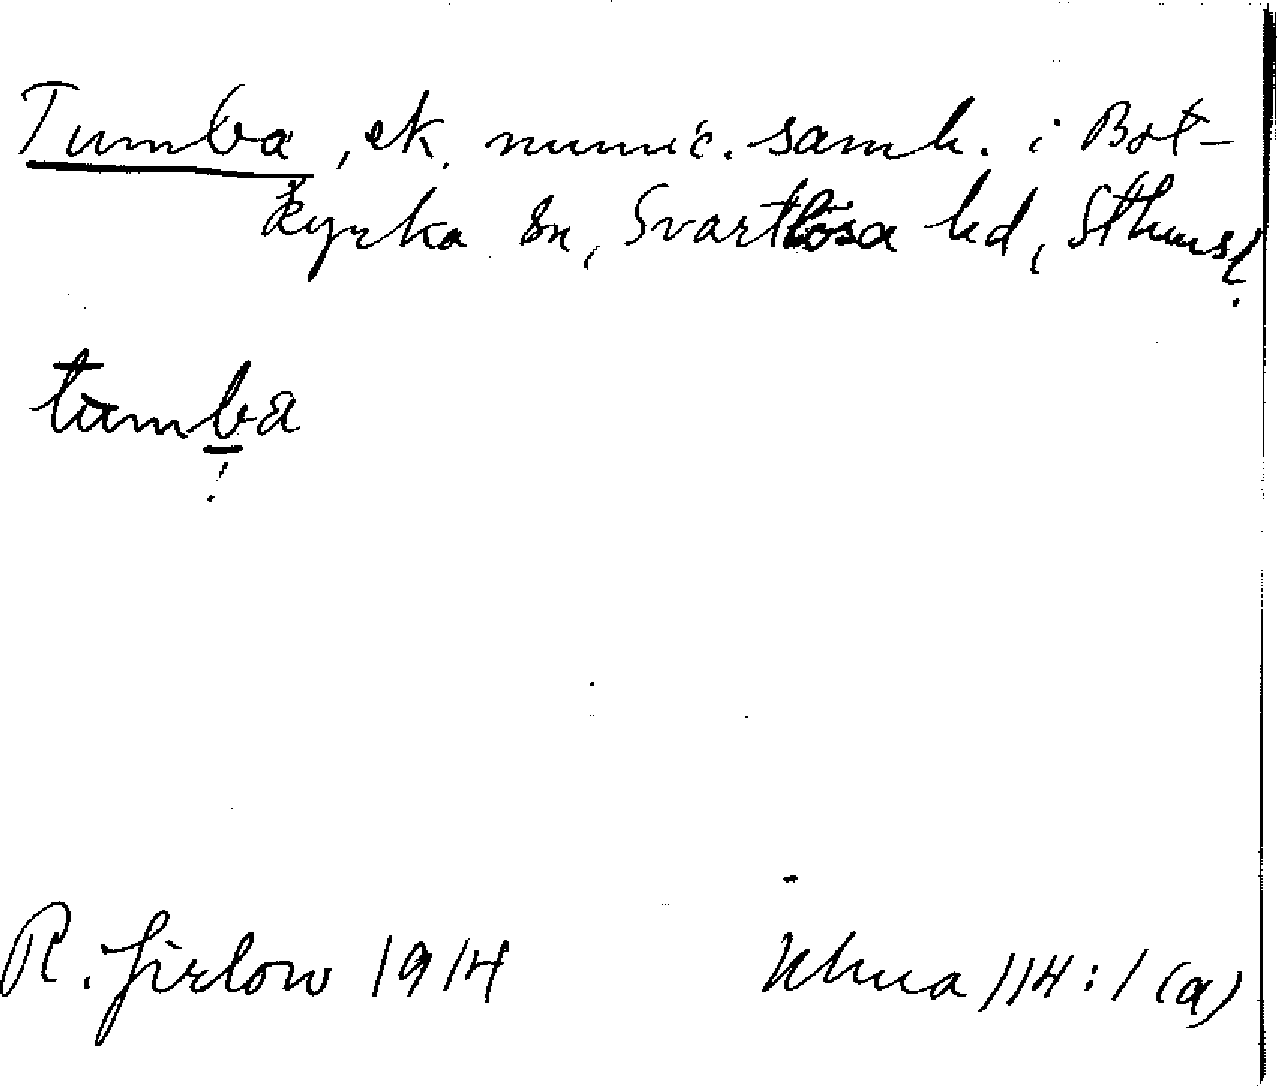 Tumba, ek. munic. samh. i Bot-
kyrka sn, Svartlösa hd, Sthmsl.
tumba
!
R. 1914
114:1 (a)